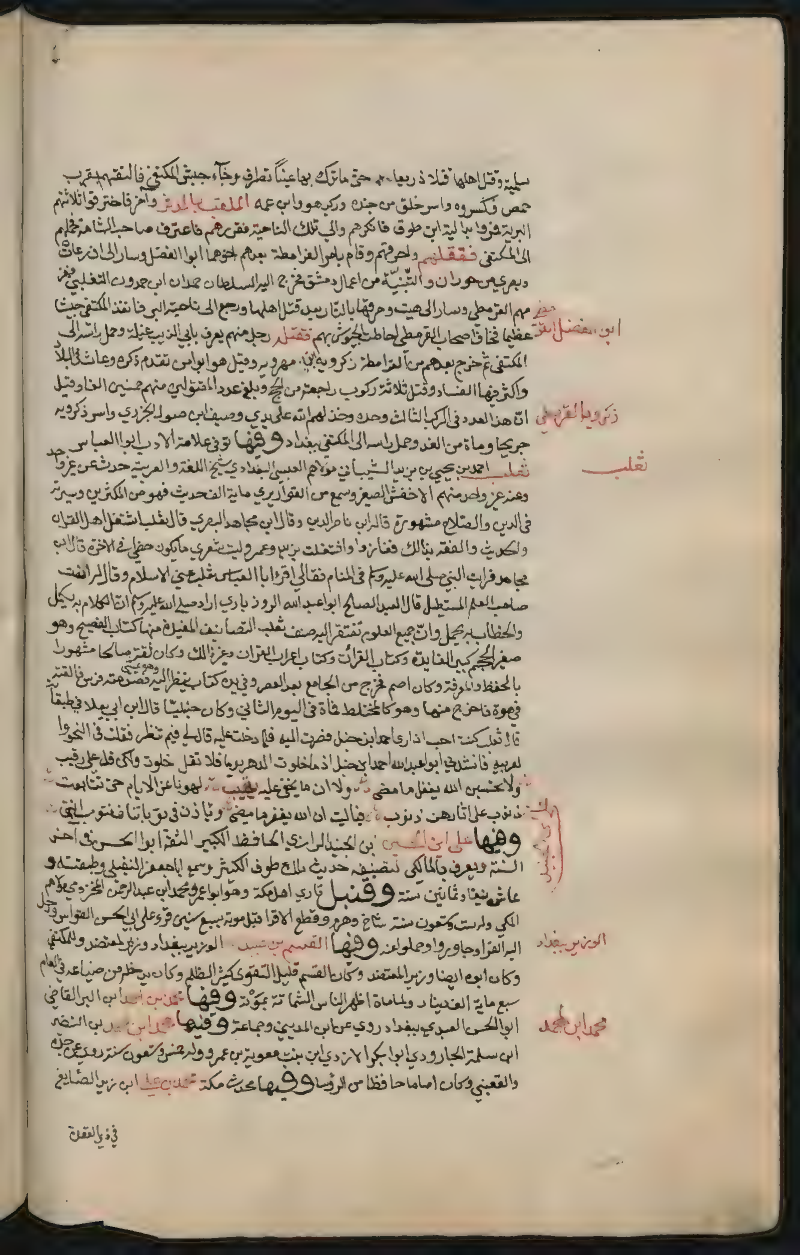 سلمية وقتل اهلها قتلا ذريعا حتى ماترك بها عيناً تطرف وجآء جيش المكتفي فالتقاهم بقرب
حمص فكسروه واسر خلق من جنده وركب هو وابن عمه الملقب بالمدثر وآخر فاخترقوا ثلاثتهم
البرية فمروا بدالية ابن طوق فانكرهم والي تلك الناحية فقررهم فاعترف صاحب الشامة فحملهم
الى المكتفي فقتلهم واحرقهم وقام بامر القرامطة بعدهم اخوهما ابوا الفضل وسار الى اذرعات
وبصرى من حوران والبثنية من اعمال دمشق فخرج اليه السلطان حمدان ابن حمدون التغلبي فهزمه
منهم القرمطي وسار الى هيت وحرقها بالنار بعد قتل اهلها ورجع الى ناحية البر فانفذ المكتفي جيشا
عظيما فخاف اصحاب القرمطي احاطت الجيوش بهم فقتله رجل منهم يعرف بابي الذيب غيلة وحمل راسه الى
المكتفي ثم خرج بعدهم من القرامطة زكرويه ابن مهرويه وقيل هو ابوا من تقدم ذكره وعاث في البلاد
واكثر فيها الفساد وقتل ثلاثة ركوب راجعة من الحج وبلغ عدد المقتولين منهم خمسين الفا وقيل
ان هذا العدد في الركب الثالث وحده وخذلهم الله على يدي وصيف ابن صول الجزري واسر زكرويه
جريحا ومات من الغد وحمل راسه الى المكتفي ببغداد وفيها توفي علامة الادب ابوا العباس
ثعلب احمد بن يحيى بن يزيد الشيباني مولاهم العبسي البغدادي شيخ اللغة والعربية حدث عن غير واحد
وعنه غير واحد منهم الاخفش الصغير وسمع من القواريري ماية الف حديث فهو من المكثرين وسيرته
في الدين والصلاح مشهورة قال ابن ناصر الدين وقال ابن مجاهد البصري قال ثعلب اشتغل اهل القران
والحديث والفقه بذالك ففازوا واشتغلت بزيد وعمر وليت شعري مايكون حظي في الاخرة قال ابن
مجاهد فرايت النبي صلى الله عليه وسلم في المنام فقال لي اقرئ ابا العباس ثعلب عني الاسلام وقال له انت
صاحب العلم المستطيل قال العبد الصالح ابوا عبد الله الروذباري اراد صلى الله عليه وسلم ان الكلام به يكمل
والخطاب به يجمل وان جميع العلوم تفتقر اليه صنف ثعلب التصانيف المفيدة منها كتاب الفصيح وهو
صغير الحجم كبير الفايدة وكتاب القرآن وكتاب اعراب القران وغير ذالك وكان ثقة صالحا مشهورا
بالحفظ والمعرفة وكان اصم فخرج من الجامع بعد العصر وفي يده كتاب ينظر اليه وهو يمشي فصدمته فرس فالقته
في هوة فاخرج منها وهو كالمختلط فمات في اليوم الثاني وكان حنبليا قال ابن ابي يعلا في طبقاته
قال ثعلب كنت احب اذ ارى احمد ابن حنبل فصرت اليه فلما دخلت عليه قال لي فيم تنظر فقلت في النحو والعربية
فانشدني ابوا عبد الله احمد ابن حنبل اذا ماخلوت الدهر يوما فلا تقل خلوت ولكن قل علي رقيب
ولا تحسبن الله يغفل ما مضى ولا ان ما يخفى عليه يغيب لهونا عن الايام حتى تتابعت
ذنوب على اثارهن ذنوب فياليت ان الله يغفر ما مضى وياذن في توباتنا فنتوب
وفيها علي ابن الحسين بن الجنيد الرازي الحافظ الكبير الثقة ابوا الحسن في اخر
السنة ويعرف بالمالكي لتصنيفه حديث مالك طوف الكثير وسمع ابا جعفر النفيلي وطبقته و
عاش نيفا وثمانين سنة وقنبل قاري اهل مكة وهو ابوا عمر محمد ابن عبد الرحمن المخزومي مولاهم
المكي وله ست وتسعون سنة شاخ وهرم وقطع الاقرا قبل موته بسبع سنين قرء على ابي الحسن القواس ورحل
اليه القرا وجاوروا وحملوا عنه وفيها القسم بن عبيد الوزير ببغداد وزير المعتضد والمكتفي
وكان ابوه ايضا وزير المعتضد وكان القسم قليل التقوى كثير الظلم وكان يدخله من ضياعه في العام
سبع ماية الف دينار ولما مات اظهر الناس الشماتة بموته وفيها محمد بن احمد ابن البرا القاضي
ابوا الحسن العبدي ببغداد روى عن ابن المديني وجماعة وفيها محمد ابن احمد بن النضر
ابن سلمة الجارودي ابوا بكر الازدي ابن بنت معوية بن عمرو وله خمس وتسعون سنة روى عن جده
والقعنبي وكان اماما حافظا من الرؤسا وفيها محدث مكة محمد بن علي ابن زيد الصايغ
في ذي القعدة
زكرويه القرمطي
ثعلب
الوزير ببغداد
محمد ابن احمد